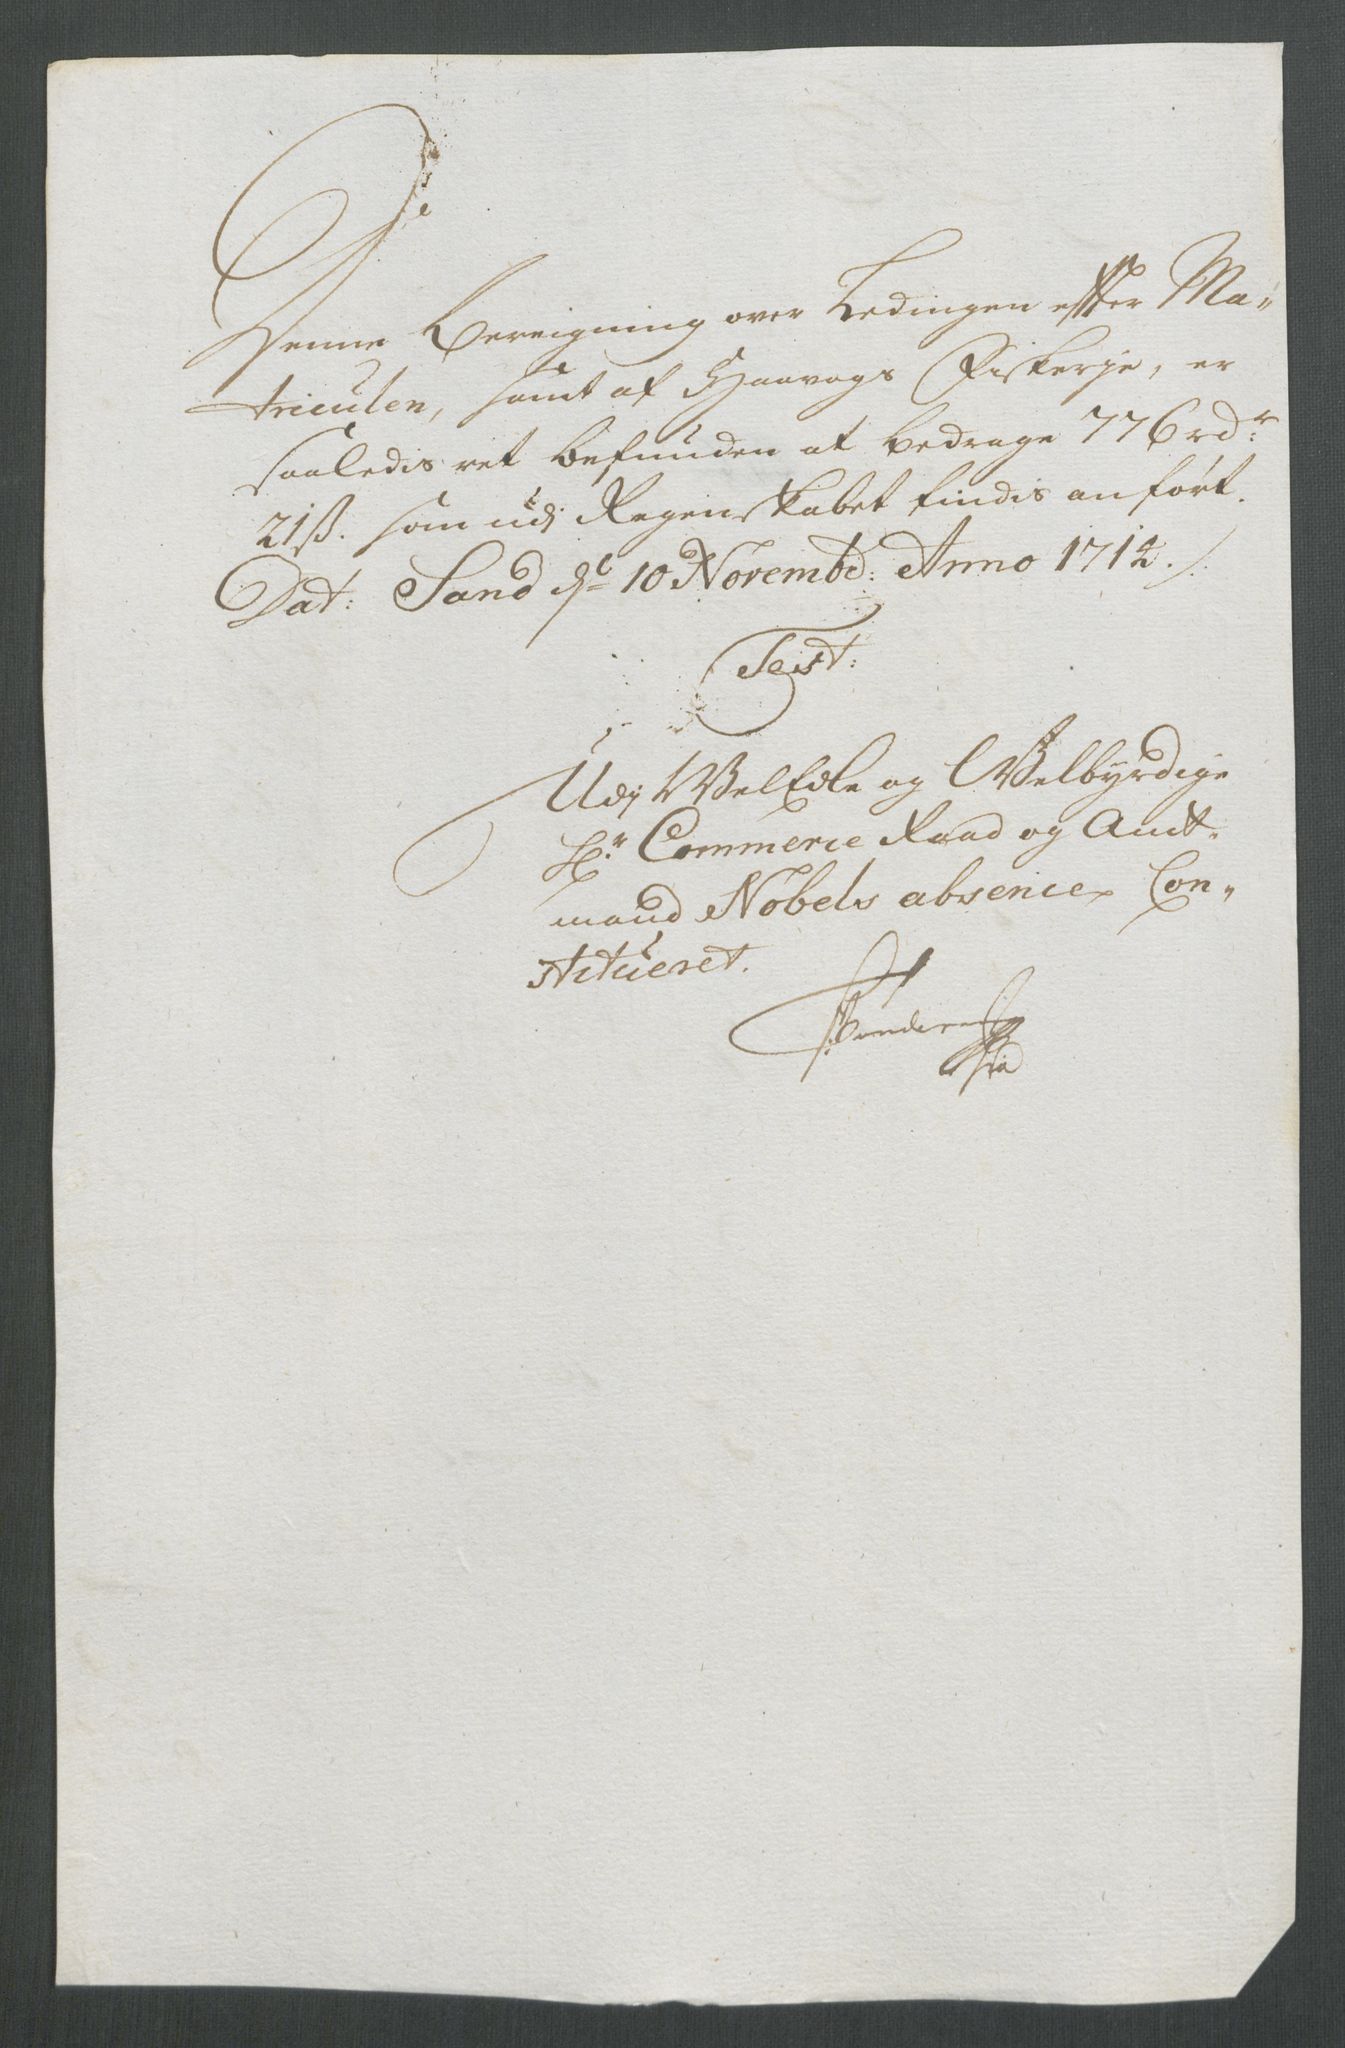 Denne Bereigning over Ledingen effter Ma-
triculen, samt af Haavogs Fiskerje, er
saaledis ret befunden at bedrage 776 rdr:
21 ß. som udj Regenskabet findis anført.
Dat: Sand d. 10 Novembr: Anno 1712 ./.
Test:
Udj WelEdle og Welbyrdige
Hr. Commerce Raad og Amt-
mand Nobels absence Con-
stitueret.